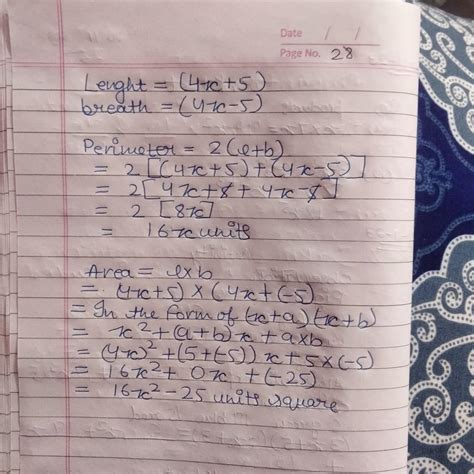 Date / /
Page No. 28
Lenght = (4x+5)
breath = (4x-5)
Perimeter = 2(l+b)
= 2[(4x+5)+(4x-5)]
= 2[4x+5+4x-5]
= 2 [8x]
= 16x units
Area = l×b
= (4x+5) × (4x+(-5)
= In the form of (x+a)(x+b)
= x²+(a+b)x+a×b
= (4x)²+(5+(-5))x+5×(-5)
= 16x²+ 0x +(-25)
= 16x²-25 units square